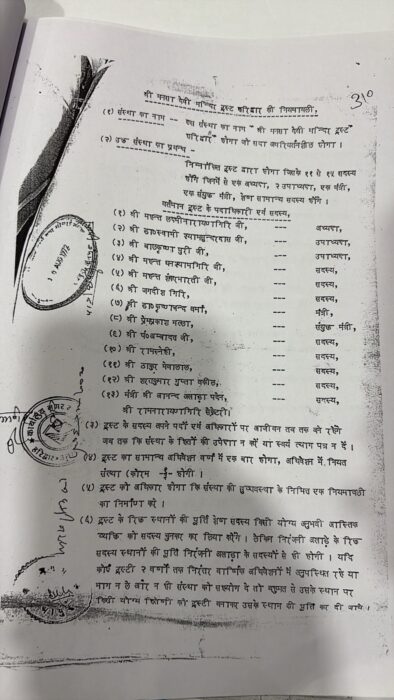 310
श्री मनसा देवी मन्दिर ट्रस्ट हरिद्वार की नियमावली,
(१) संस्था का नाम -- इस संस्था का नाम "श्री मनसा देवी मन्दिर ट्रस्ट
हरिद्वार" होगा जो सदा अपरिवर्तनशील होगा ।
(२) उक्त संस्था का प्रबन्ध -
निम्नांकित ट्रस्ट द्वारा होगा जिसके ११ से १५ सदस्य
होंगे जिनमें से एक अध्यक्ष, २ उपाध्यक्ष, एक मंत्री,
एक संयुक्त मंत्री, शेष सामान्य सदस्य होंगे ।
वर्तमान ट्रस्ट के पदाधिकारी एवं सदस्य,
(१) श्री महन्त लक्ष्मीनारायणगिरि जी, ---- अध्यक्ष,
(२) श्री डा०स्वामी श्यामसुन्दरदास जी, ---- उपाध्यक्ष,
(३) श्री बालकृष्ण पुरी जी, ---- उपाध्यक्ष,
(४) श्री महन्त घनश्यामगिरि जी, ---- सदस्य,
(५) श्री महन्त शंकरभारती जी, ---- सदस्य,
(६) श्री जगदीश गिरि, ---- सदस्य,
(७) श्री डा० वर्मा, ---- मंत्री,
(८) श्री प्रेमप्रकाश मल्होत्रा, ---- संयुक्त मंत्री,
(९) श्री पं० जी, ---- सदस्य,
(१०) श्री ---- सदस्य,
(११) श्री ठाकुर ---- सदस्य,
(१२) श्री गुप्ता वकील, ---- सदस्य,
(१३) मंत्री श्री आनन्द अखाड़ा पदेन, ---- सदस्य,
श्री रामनारायणगिरि सेक्रेटरी।
(३) ट्रस्ट के सदस्य अपने पदों एवं अधिकारों पर आजीवन तब तक बने रहेंगे
जब तक कि संस्था के हितों की उपेक्षा न करें या स्वयं त्याग पत्र न दें ।
(४) ट्रस्ट का सामान्य अधिवेशन वर्ष में एक बार होगा, अधिवेशन में, नियत
संख्या (कोरम होगी ।
(५) ट्रस्ट को अधिकार होगा कि संस्था की सुव्यवस्था के निमित्त एक नियमावली
का निर्माण करे ।
(६) ट्रस्ट के रिक्त स्थानों की पूर्ति शेष सदस्य किसी योग्य अनुभवी आस्तिक
व्यक्ति को सदस्य चुनकर कर लिया करेंगे । लेकिन निरंजनी अखाड़े के रिक्त
सदस्य स्थानों की पूर्ति निरंजनी अखाड़ा के सदस्यों से ही होगी । यदि
कोई ट्रस्टी २ वर्षों तक निरंतर वार्षिक अधिवेशनों में अनुपस्थित रहे या
भाग न ले और न ही संस्था को सहयोग दे तो बहुमत से उसके स्थान पर
किसी योग्य व्यक्ति को ट्रस्टी बनाकर उसके स्थान की पूर्ति कर ली जाये ।